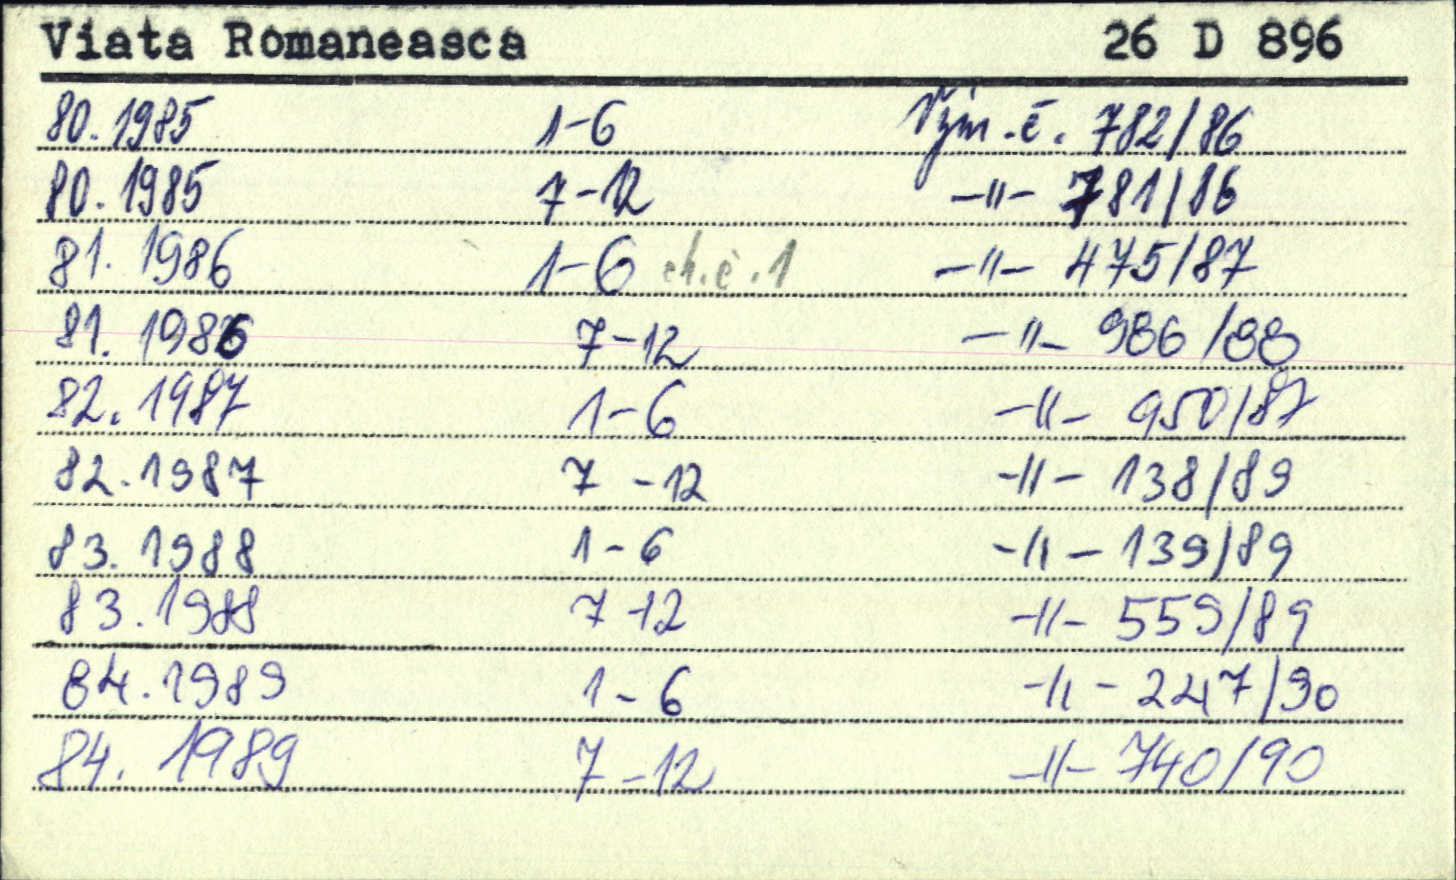 Viata Romaneasca 26 D 896
80. 1985 1-6 Vým. č. 782/86
80. 1985 7-12 -"- 781/86
81. 1986 1-6 ch. č. 1 -"- 475/87
81. 1986 7-12 -"- 986/88
82. 1987 1-6 -"- 950/87
82. 1987 7-12 -"- 138/89
83. 1988 1-6 -"- 139/89
83. 1988 7-12 -"- 559/89
84. 1989 1-6 -"- 247/90
84. 1989 7-12 -"- 740/90